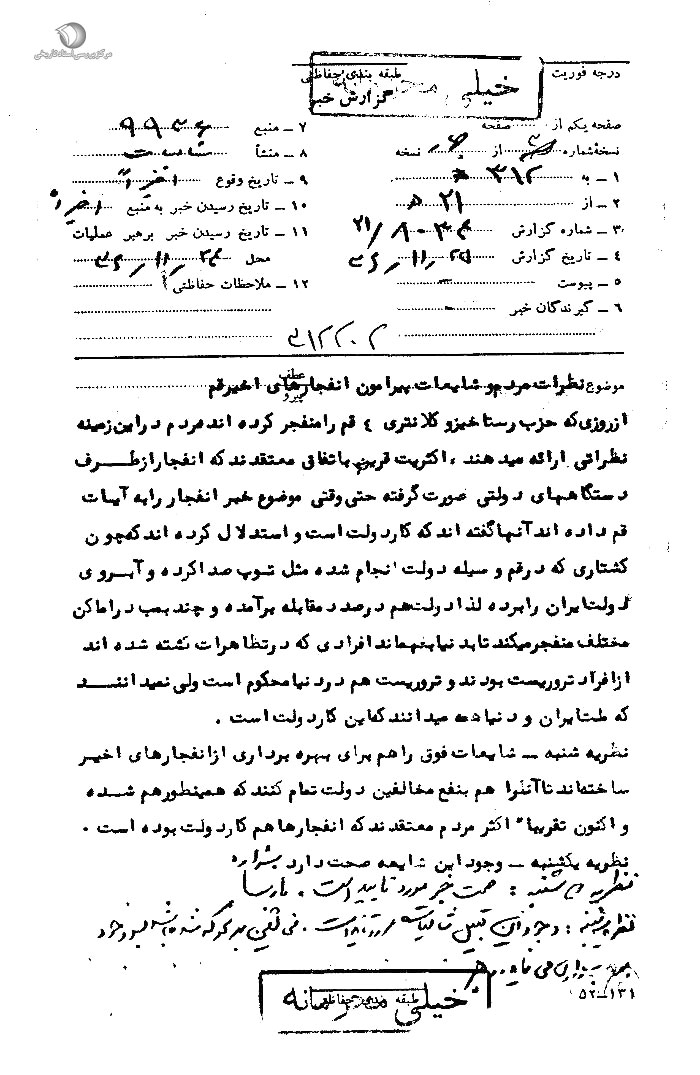 مرکز بررسی اسناد تاریخی
درجه فوریت
طبقه بندی حفاظتی
خیلی محرمانه
گزارش خبر
صفحه یکم از صفحه
نسخه شماره از نسخه
۱ ـ به ۳۱۲
۲ ـ از ۲۱ ه
۳ ـ شماره گزارش
۴ ـ تاریخ گزارش
۵ ـ پیوست
۶ ـ گیرندگان خبر
۷ ـ منبع ۹۹۳۶
۸ ـ منشأ
۹ ـ تاریخ وقوع اخیراً
۱۰ ـ تاریخ رسیدن خبر به منبع اخیراً
۱۱ ـ تاریخ رسیدن خبر برهبر عملیات
محل
۱۲ ـ ملاحظات حفاظتی
۳۱۲۲۰۲
عطف
پیرو
موضوع نظرات مردم و شایعات پیرامون انفجارهای اخیر قم
از روزی که حزب رستاخیز و کلانتری ٤ قم را منفجر کرده اند مردم در این زمینه
نظراتی ارائه میدهند ، اکثریت قریب باتفاق معتقدند که انفجار از طرف
دستگاههای دولتی صورت گرفته حتی وقتی موضوع خبر انفجار را به آیات
قم داده اند آنها گفته اند که کار دولت است و استدلال کرده اند که چون
کشتاری که در قم وسیله دولت انجام شده مثل توپ صدا کرده و آبروی
دولت ایران را برده لذا دولت هم درصدد مقابله برآمده و چند بمب در اماکن
مختلف منفجر میکند تا بدنیا بفهماند افرادی که در تظاهرات کشته شده اند
از افراد تروریست بودند و تروریست هم در دنیا محکوم است ولی نمیدانند
که ملت ایران و دنیا همه میدانند که این کار دولت است .
نظریه شنبه ـ شایعات فوق را هم برای بهره برداری از انفجارهای اخیر
ساخته اند تا آنرا هم بنفع مخالفین دولت تمام کنند که همینطور هم شده
و اکنون تقریبا" اکثر مردم معتقدند که انفجارها هم کار دولت بوده است .
نظریه یکشنبه ـ وجود این شایعه صحت دارد
نظریه شنبه : صحت خبر مورد تایید است . پارسا
نظریه : وجود این قبیل شایعات
طبقه بندی حفاظتی
خیلی محرمانه
۱۳۱ـ۵۲